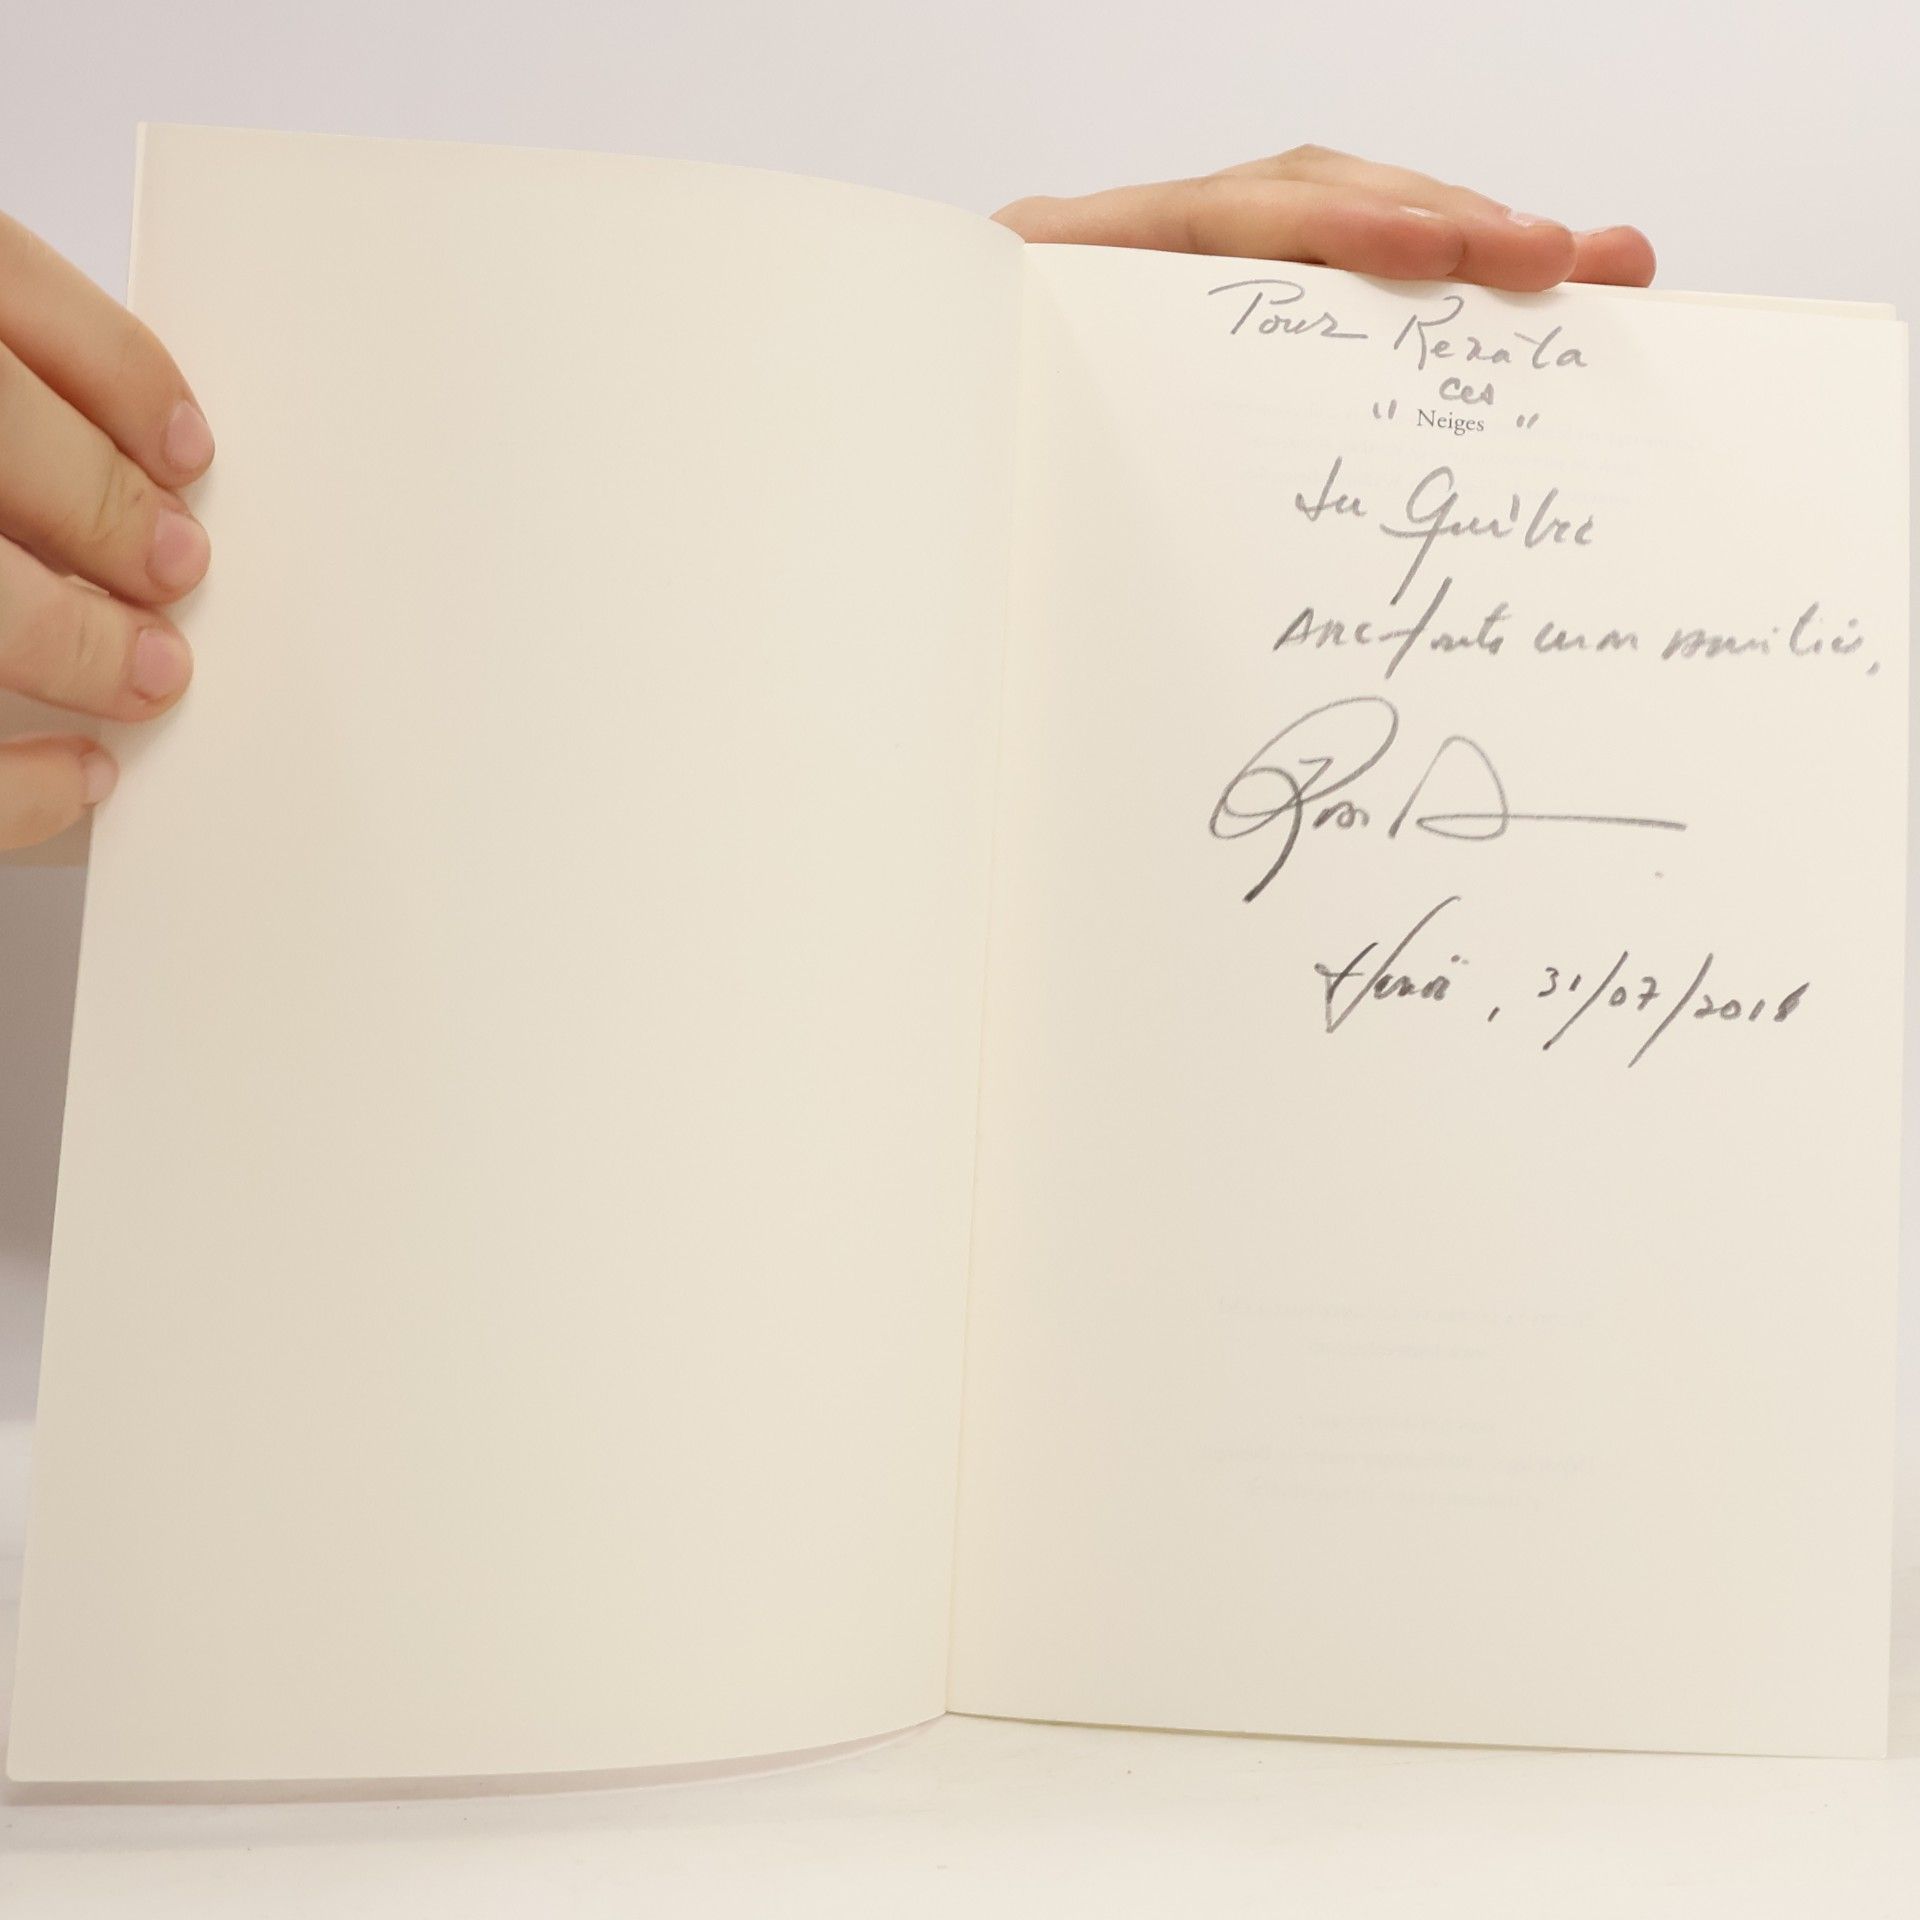 Pour Renata
ces
" Neiges "
du Québec
Avec toute mon amitié,
31/07/2018